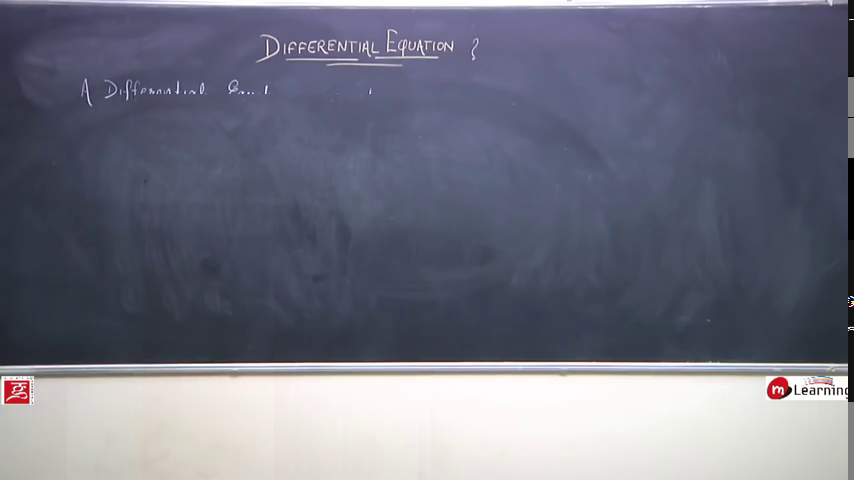 DIFFERENTIAL EQUATION ?
A Differential
m Learning